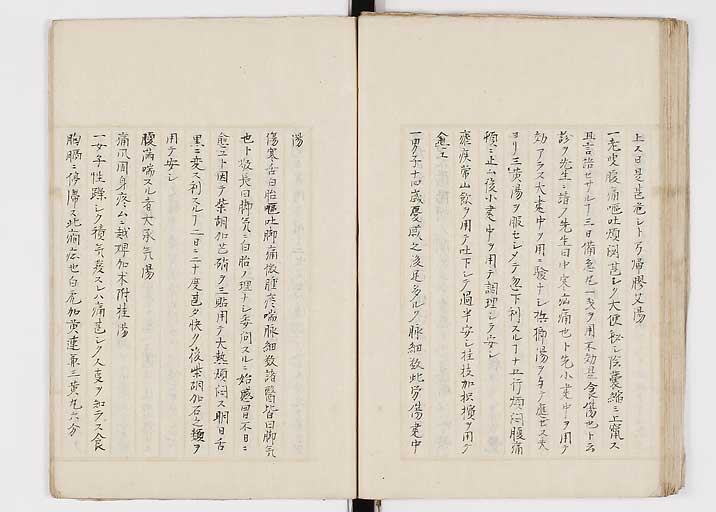 上ス曰是甚危シト芎帰膠艾湯
一老叟腹痛嘔吐煩悶甚シク大便秘シ陰嚢縮ミ上竄ス
其言語セサルヿ三日備急丸一匁ヲ用不効是食傷也ト云
診ヲ先生ニ請ノ先生曰中寒疝痛也ト先小建中ヲ用テ
効アラス大建中ヲ用ニ験ナシ附湯ヲ与テ應セス夫
ヨリ三黄湯ヲ服セシメテ忽下利スルヿ十五行煩悶腹痛
頓ニ止ム後小建中ヲ用テ調理シテ安シ
瘧疾常山飲ヲ用テ吐下シテ過半安シ桂枝加ヲ用テ
愈エ
一男子十四歳慶感之後足タルク脉細数此労傷建中
湯
傷寒舌白胎嘔吐脚痛微腫疼喘脉細数諸醫皆曰脚気
也ト敬長曰脚気ニ白胎ノ理ナシ委問スルニ始感冒不日ニ
愈エト因テ柴胡加芒硝ヲ三貼用テ大熱煩悶ス明日舌
黒ニ変ス利スルヿ二日ニ二十度甚タ快ク後柴胡加石之類ヲ
用テ安シ
腹満喘スル者大承気湯
痛爪周身疼ムニ越婢加朮附桂湯
一女子性躁シク積気発スレハ痛甚シク人変ヲ知ラス食
胸膈ニ停滞ス此癇症也白虎加黄連兼三黄丸六分